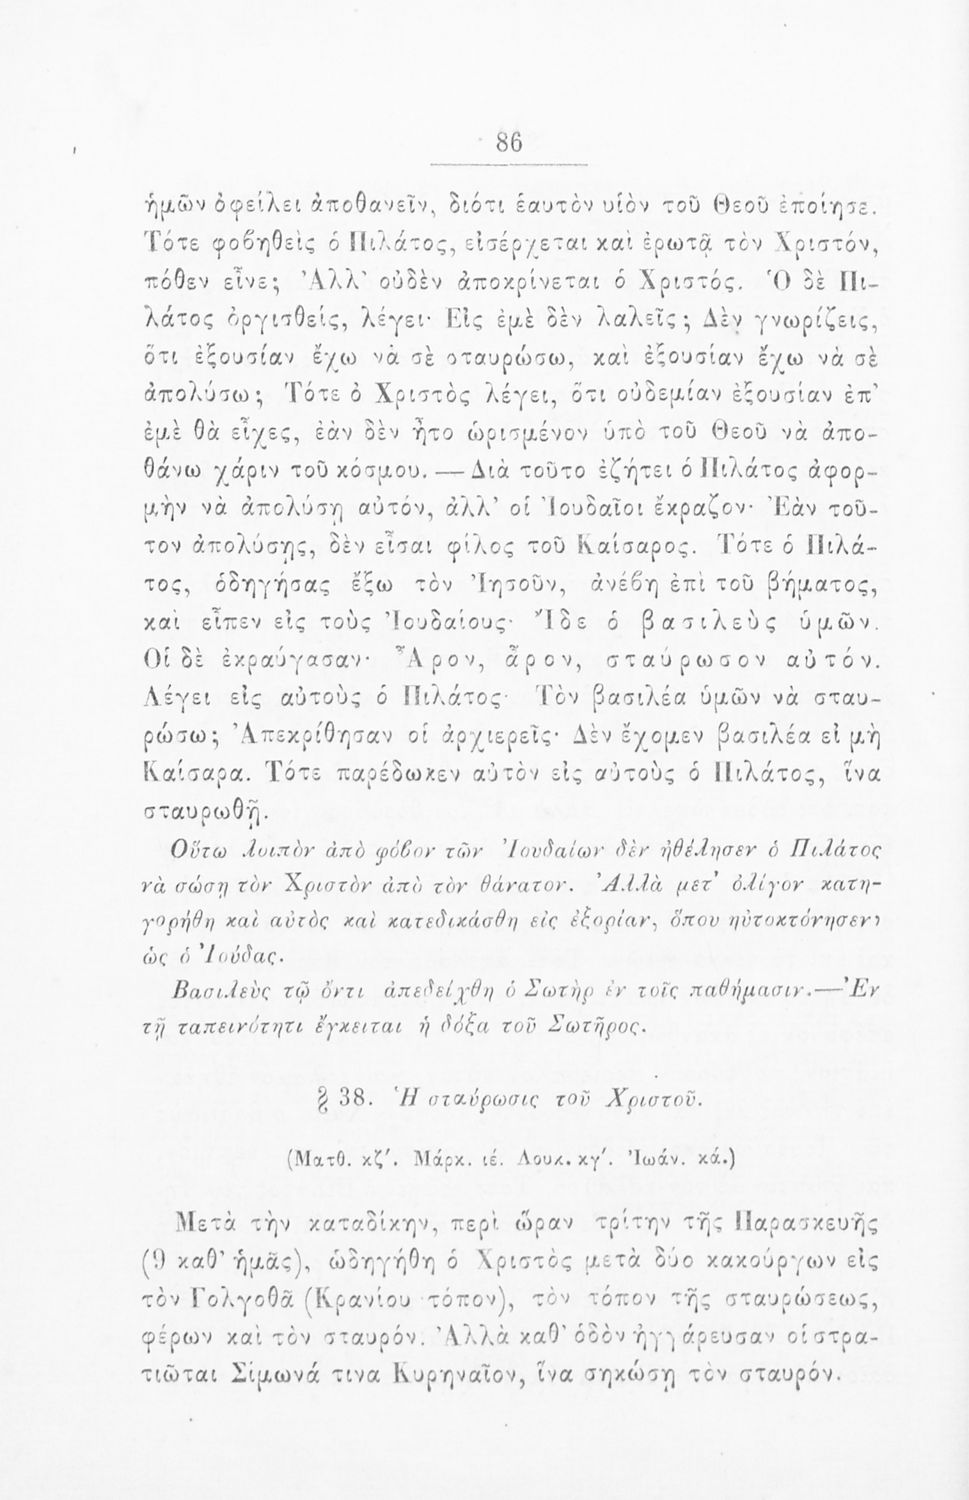 86
ἡμῶν ὀφείλει ἀποθανεῖν, διότι ἑαυτὸν υἱὸν τοῦ Θεοῦ ἐποίησε.
Τότε φοβηθεὶς ὁ Πιλάτος, εἰσέρχεται καὶ ἐρωτᾷ τὸν Χριστόν,
πόθεν εἶνε; Ἀλλ' οὐδὲν ἀποκρίνεται ὁ Χριστός. Ὁ δὲ Πι-
λάτος ὀργισθείς, λέγει· Εἰς ἐμὲ δὲν λαλεῖς; Δὲν γνωρίζεις,
ὅτι ἐξουσίαν ἔχω νὰ σὲ σταυρώσω, καὶ ἐξουσίαν ἔχω νὰ σὲ
ἀπολύσω; Τότε ὁ Χριστὸς λέγει, ὅτι οὐδεμίαν ἐξουσίαν ἐπ'
ἐμὲ θὰ εἶχες, ἐὰν δὲν ἦτο ὡρισμένον ὑπὸ τοῦ Θεοῦ νὰ ἀπο-
θάνω χάριν τοῦ κόσμου. — Διὰ τοῦτο ἐζήτει ὁ Πιλάτος ἀφορ-
μὴν νὰ ἀπολύσῃ αὐτόν, ἀλλ' οἱ Ἰουδαῖοι ἔκραζον· Ἐὰν τοῦ-
τον ἀπολύσῃς, δὲν εἶσαι φίλος τοῦ Καίσαρος. Τότε ὁ Πιλά-
τος, ὁδηγήσας ἔξω τὸν Ἰησοῦν, ἀνέβη ἐπὶ τοῦ βήματος,
καὶ εἶπεν εἰς τοὺς Ἰουδαίους· Ἴδε ὁ βασιλεὺς ὑμῶν.
Οἱ δὲ ἐκραύγασαν· Ἆρον, ἆρον, σταύρωσον αὐτόν.
Λέγει εἰς αὐτοὺς ὁ Πιλάτος· Τὸν βασιλέα ὑμῶν νὰ σταυ-
ρώσω; Ἀπεκρίθησαν οἱ ἀρχιερεῖς· Δὲν ἔχομεν βασιλέα εἰ μὴ
Καίσαρα. Τότε παρέδωκεν αὐτὸν εἰς αὐτοὺς ὁ Πιλάτος, ἵνα
σταυρωθῇ.
Οὕτω λοιπὸν ἀπὸ φόβον τῶν Ἰουδαίων δὲν ἠθέλησεν ὁ Πιλάτος
νὰ σώσῃ τὸν Χριστὸν ἀπὸ τὸν θάνατον. Ἀλλὰ μετ' ὀλίγον κατη-
γορήθη καὶ αὐτὸς καὶ κατεδικάσθη εἰς ἐξορίαν, ὅπου ηὐτοκτόνησεν,
ὡς ὁ Ἰούδας.
Βασιλεὺς τῷ ὄντι ἀπεδείχθη ὁ Σωτὴρ ἐν τοῖς παθήμασιν.—Ἐν
τῇ ταπεινότητι ἔγκειται ἡ δόξα τοῦ Σωτῆρος.
§ 38. Ἡ σταύρωσις τοῦ Χριστοῦ.
(Ματθ. κζ'. Μάρκ. ιέ. Λουκ. κγ'. Ἰωάν. κά.)
Μετὰ τὴν καταδίκην, περὶ ὥραν τρίτην τῆς Παρασκευῆς
(9 καθ' ἡμᾶς), ὡδηγήθη ὁ Χριστὸς μετὰ δύο κακούργων εἰς
τὸν Γολγοθᾶ (Κρανίου τόπον), τὸν τόπον τῆς σταυρώσεως,
φέρων καὶ τὸν σταυρόν. Ἀλλὰ καθ' ὁδὸν ἠγγάρευσαν οἱ στρα-
τιῶται Σίμωνά τινα Κυρηναῖον, ἵνα σηκώσῃ τὸν σταυρόν.